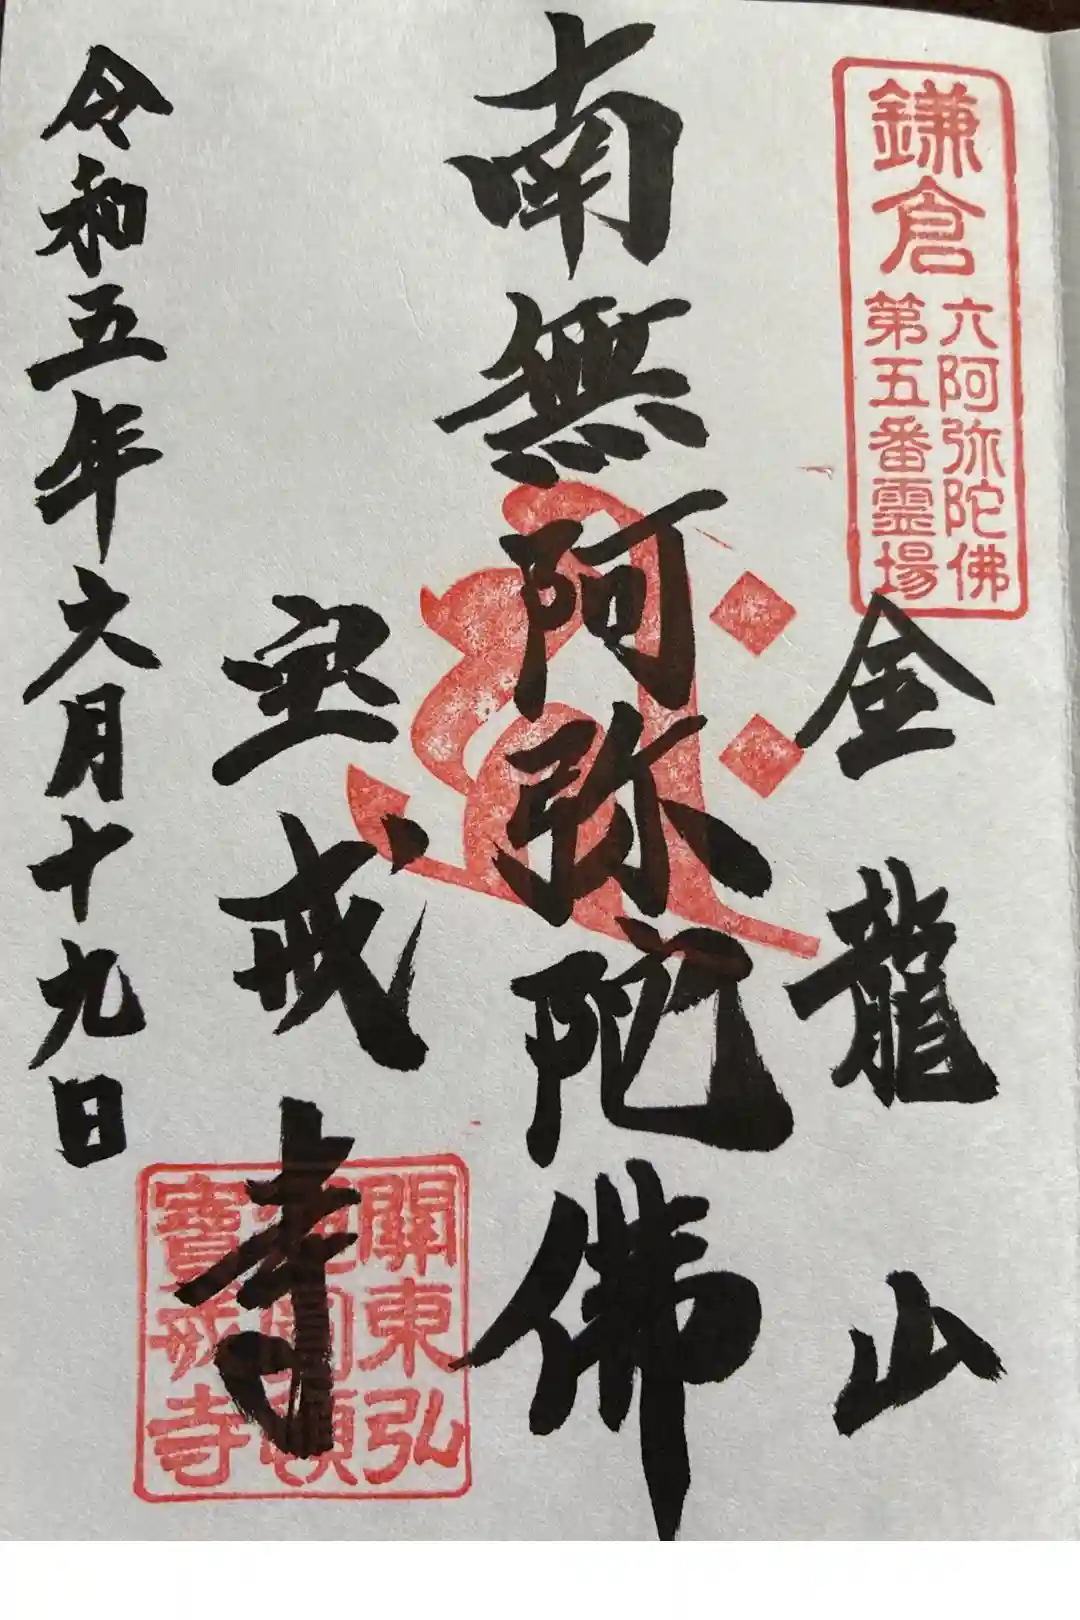 鎌倉
六阿弥陀佛
第五番霊場
金龍山
南無阿弥陀佛
宝戒寺
關東弘
圓頓
寶戒寺
令和五年六月十九日